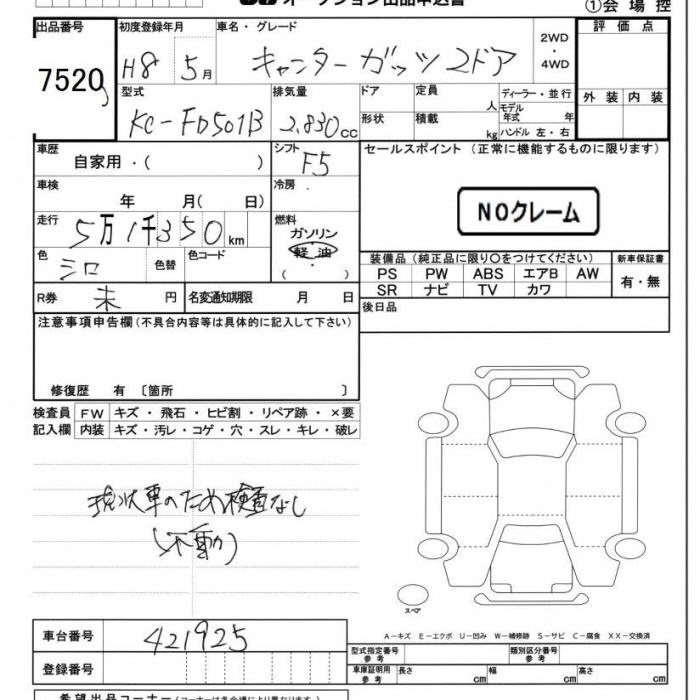 オークション出品申込書 ①会場控
出品番号 初度登録年月 車名・グレード 評価点
7520 H8 5月 キャンター ガッツ 2ドア 2WD・4WD
外装 内装
型式 排気量 ドア 定員 人 ディーラー・並行
KC-FD501B 2,830cc 形状 積載 kg モデル年式 年
ハンドル 左・右
車歴 自家用・( ) シフト F5 セールスポイント(正常に機能するものに限ります)
車検 年 月( 日) 冷房
NOクレーム
走行 5万1千350km 燃料 ガソリン
軽油
( )
色 シロ 色替 色コード
装備品(純正品に限り○をつけてください) 新車保証書
PS PW ABS エアB AW 有・無
SR ナビ TV カワ
R券 未 円 名変通知期限 月 日
後日品
注意事項申告欄(不具合内容等は具体的に記入して下さい)
修復歴 有〔箇所 〕
検査員 FW キズ・飛石・ヒビ割・リペア跡・×要
記入欄 内装 キズ・汚レ・コゲ・穴・スレ・キレ・破レ
現状車のため検査なし
(不動)
スペア
A-キズ E-エクボ U-凹み W-補修跡 S-サビ C-腐食 XX-交換済
車台番号 421925
型式指定番号 参考 類別区分番号 参考
登録番号
車庫証明用 参考 長さ cm 幅 cm 高さ cm
希望出品コーナー(コーナーは各会場により異なります)